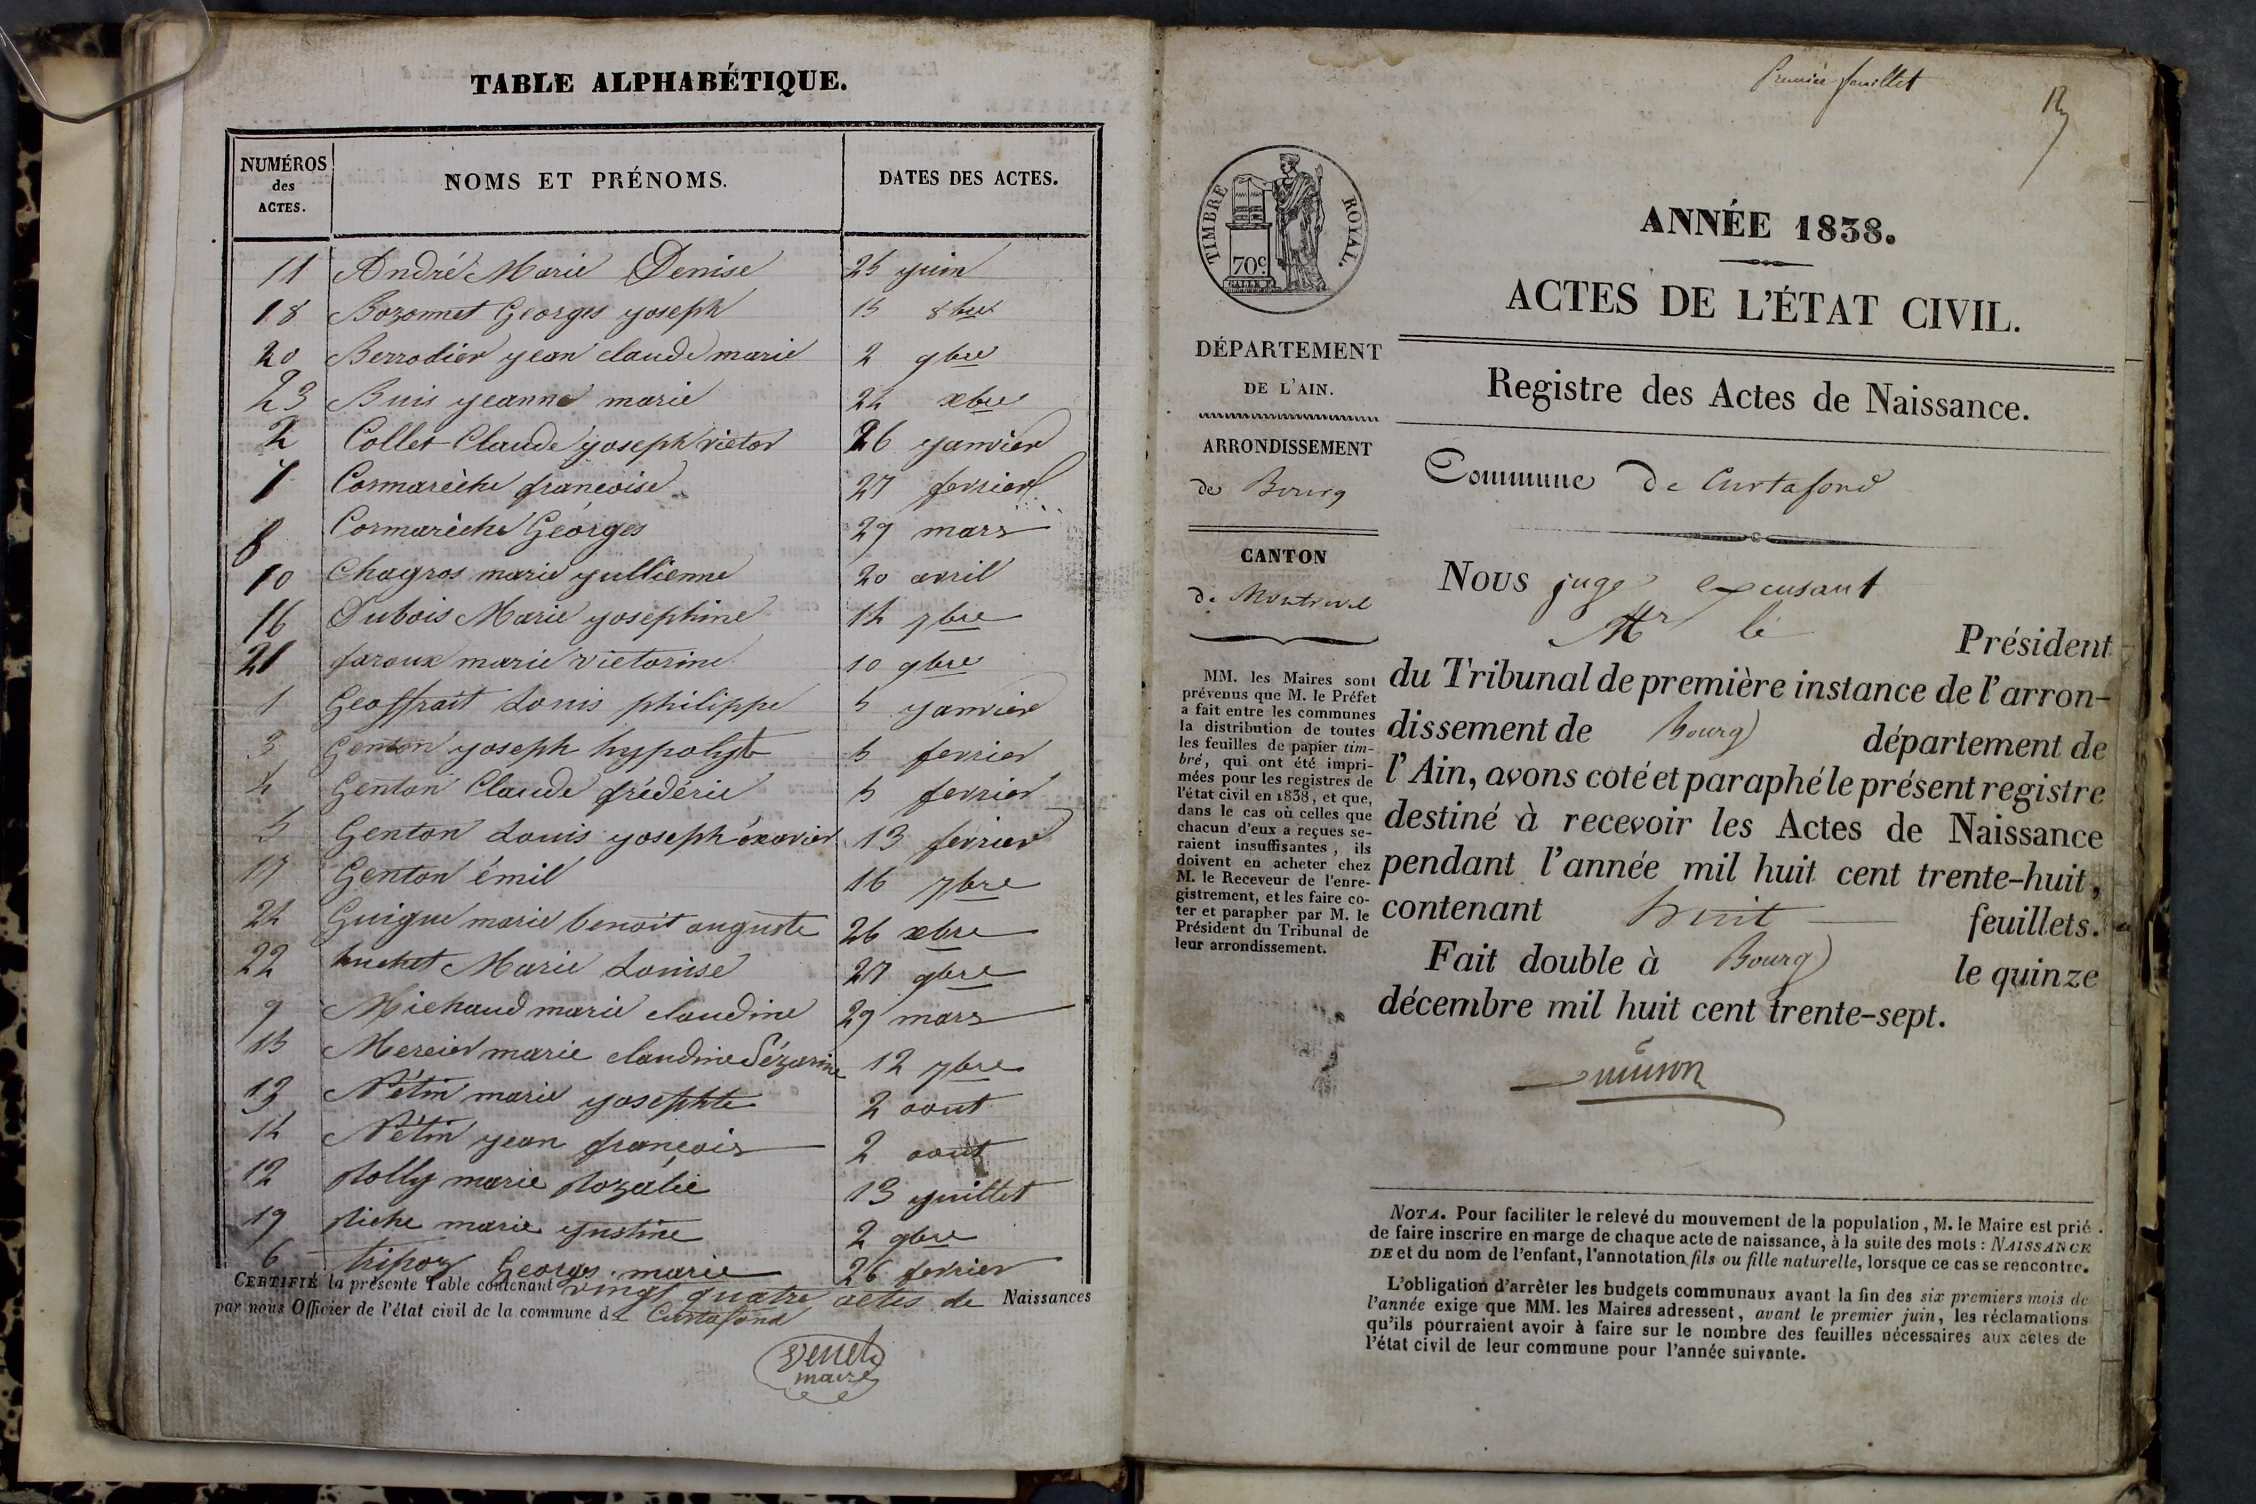 TABLE ALPHABÉTIQUE.
NUMÉROS des ACTES. NOMS ET PRÉNOMS. DATES DES ACTES.
11 André Marie Denise 25 yuin
18 Bozonnet Georges yoseph 15 8bre
20 Berrodier yean claude marie 2 9bre
23 Buis yeanne marie 24 xbre
2 Collet Claude yoseph victor 26 yanvier
7 Cormarèche françoise 27 fevrier
8 Cormarèche Georges 29 mars
10 Chagros marie yullienne 20 avril
16 Dubois Marie yosephine 14 7bre
21 faroux marie victorine 10 9bre
1 Geoffrait Louis philippe 5 yanvier
3 Genton yoseph hypolyte 5 fevrier
4 Genton Claude frédéric 5 fevrier
5 Genton Louis yoseph éxavier 13 fevrier
17 Genton émil 16 7bre
24 Guigue marie benoit auguste 26 xbre
22 huchet Marie Louise 27 9bre
9 Michaud marie claudine 29 mars
15 Mercier marie claudine Sézarine 12 7bre
13 Nétin marie yosephte 2 aout
14 Nétin yean françois 2 aout
12 Rolly marie Rozalie 13 yuillet
19 Riche marie yustine 2 9bre
6 tripoz Georges marie 26 fevrier
CERTIFIÉ la présente Table contenant vingt quatre actes de Naissances
par nous Officier de l'état civil de la commune de Curtafond
Venet
maire
Premier feuillet
TIMBRE ROYAL.
70c
ANNÉE 1838.
ACTES DE L'ÉTAT CIVIL.
DÉPARTEMENT
DE L'AIN.
Registre des Actes de Naissance.
ARRONDISSEMENT
de Bourg
Commune de Curtafond
CANTON
de Montrevel
MM. les Maires sont
prévenus que M. le Préfet
a fait entre les communes
la distribution de toutes
les feuilles de papier tim-
bré, qui ont été impri-
mées pour les registres de
l'état civil en 1838, et que,
dans le cas où celles que
chacun d'eux a reçues se-
raient insuffisantes, ils
doivent en acheter chez
M. le Receveur de l'enre-
gistrement, et les faire co-
ter et parapher par M. le
Président du Tribunal de
leur arrondissement.
Nous juge excusant
Mr le Président
du Tribunal de première instance de l'arron-
dissement de Bourg département de
l'Ain, avons coté et paraphé le présent registre
destiné à recevoir les Actes de Naissance
pendant l'année mil huit cent trente-huit,
contenant huit feuillets.
Fait double à Bourg le quinze
décembre mil huit cent trente-sept.
NOTA. Pour faciliter le relevé du mouvement de la population, M. le Maire est prié
de faire inscrire en marge de chaque acte de naissance, à la suite des mots : NAISSANCE
DE et du nom de l'enfant, l'annotation fils ou fille naturelle, lorsque ce cas se rencontre.
L'obligation d'arrêter les budgets communaux avant la fin des six premiers mois de
l'année exige que MM. les Maires adressent, avant le premier juin, les réclamations
qu'ils pourraient avoir à faire sur le nombre des feuilles nécessaires aux actes de
l'état civil de leur commune pour l'année suivante.